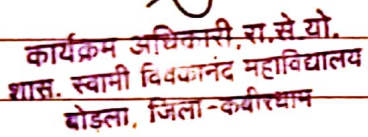 कार्यक्रम अधिकारी, रा.से.यो.
शास. स्वामी विवेकानंद महाविद्यालय
बोड़ला, जिला-कबीरधाम